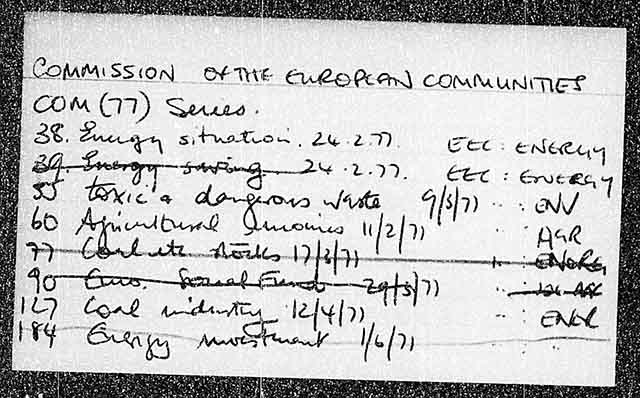 COMMISSION OF THE EUROPEAN COMMUNITIES
COM (77) Series.
38. Energy situation. 24.2.77. EEC: ENERGY
39. Energy saving 24.2.77. EEC: ENERGY
55 toxic & dangerous waste 9/3/77 " : ENV
60 Agricultural 11/2/77 " : AGR
77 stocks 17/3/77 " : ENERG
90 Euro. Social Fund 29/3/77 " :
127 Coal industry 12/4/77 " : ENER
184 Energy investment 1/6/77 " "